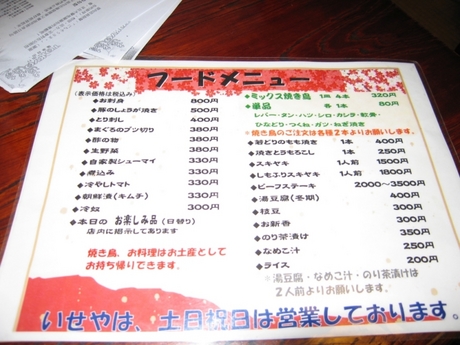 フードメニュー
(表示価格は税込み)
◆お刺身 800円
◆豚のしょうが焼き 500円
◆とり刺し 400円
◆まぐろのブツ切り 380円
◆酢の物 380円
◆生野菜 380円
◆自家製シューマイ 330円
◆煮込み 330円
◆冷やしトマト 330円
◆朝鮮漬(キムチ) 330円
◆冷奴 300円
◆本日の お楽しみ品(日替り)
店内に掲示してあります
焼き鳥、お料理はお土産として
お持ち帰りできます。
◆ミックス焼き鳥 1皿 4本 320円
◆単品 各1本 80円
レバー・タン・ハツ・シロ・カシラ・軟骨・
ひなどり・つくね・ガツ・ねぎ焼き
*焼き鳥のご注文は各種2本よりお願いします。
◆若どりのもも焼き 1本 400円
◆焼きとうもろこし 1本 250円
◆スキヤキ 1人前 1500円
◆しもふりスキヤキ 1人前 1800円
◆ビーフステーキ 2000〜3500円
◆湯豆腐(冬期) 400円
◆枝豆 300円
◆お新香 300円
◆のり茶漬け 350円
◆なめこ汁 250円
◆ライス 200円
*湯豆腐・なめこ汁・のり茶漬けは
2人前よりお願いします。
いせやは、土日祝日は営業しております。